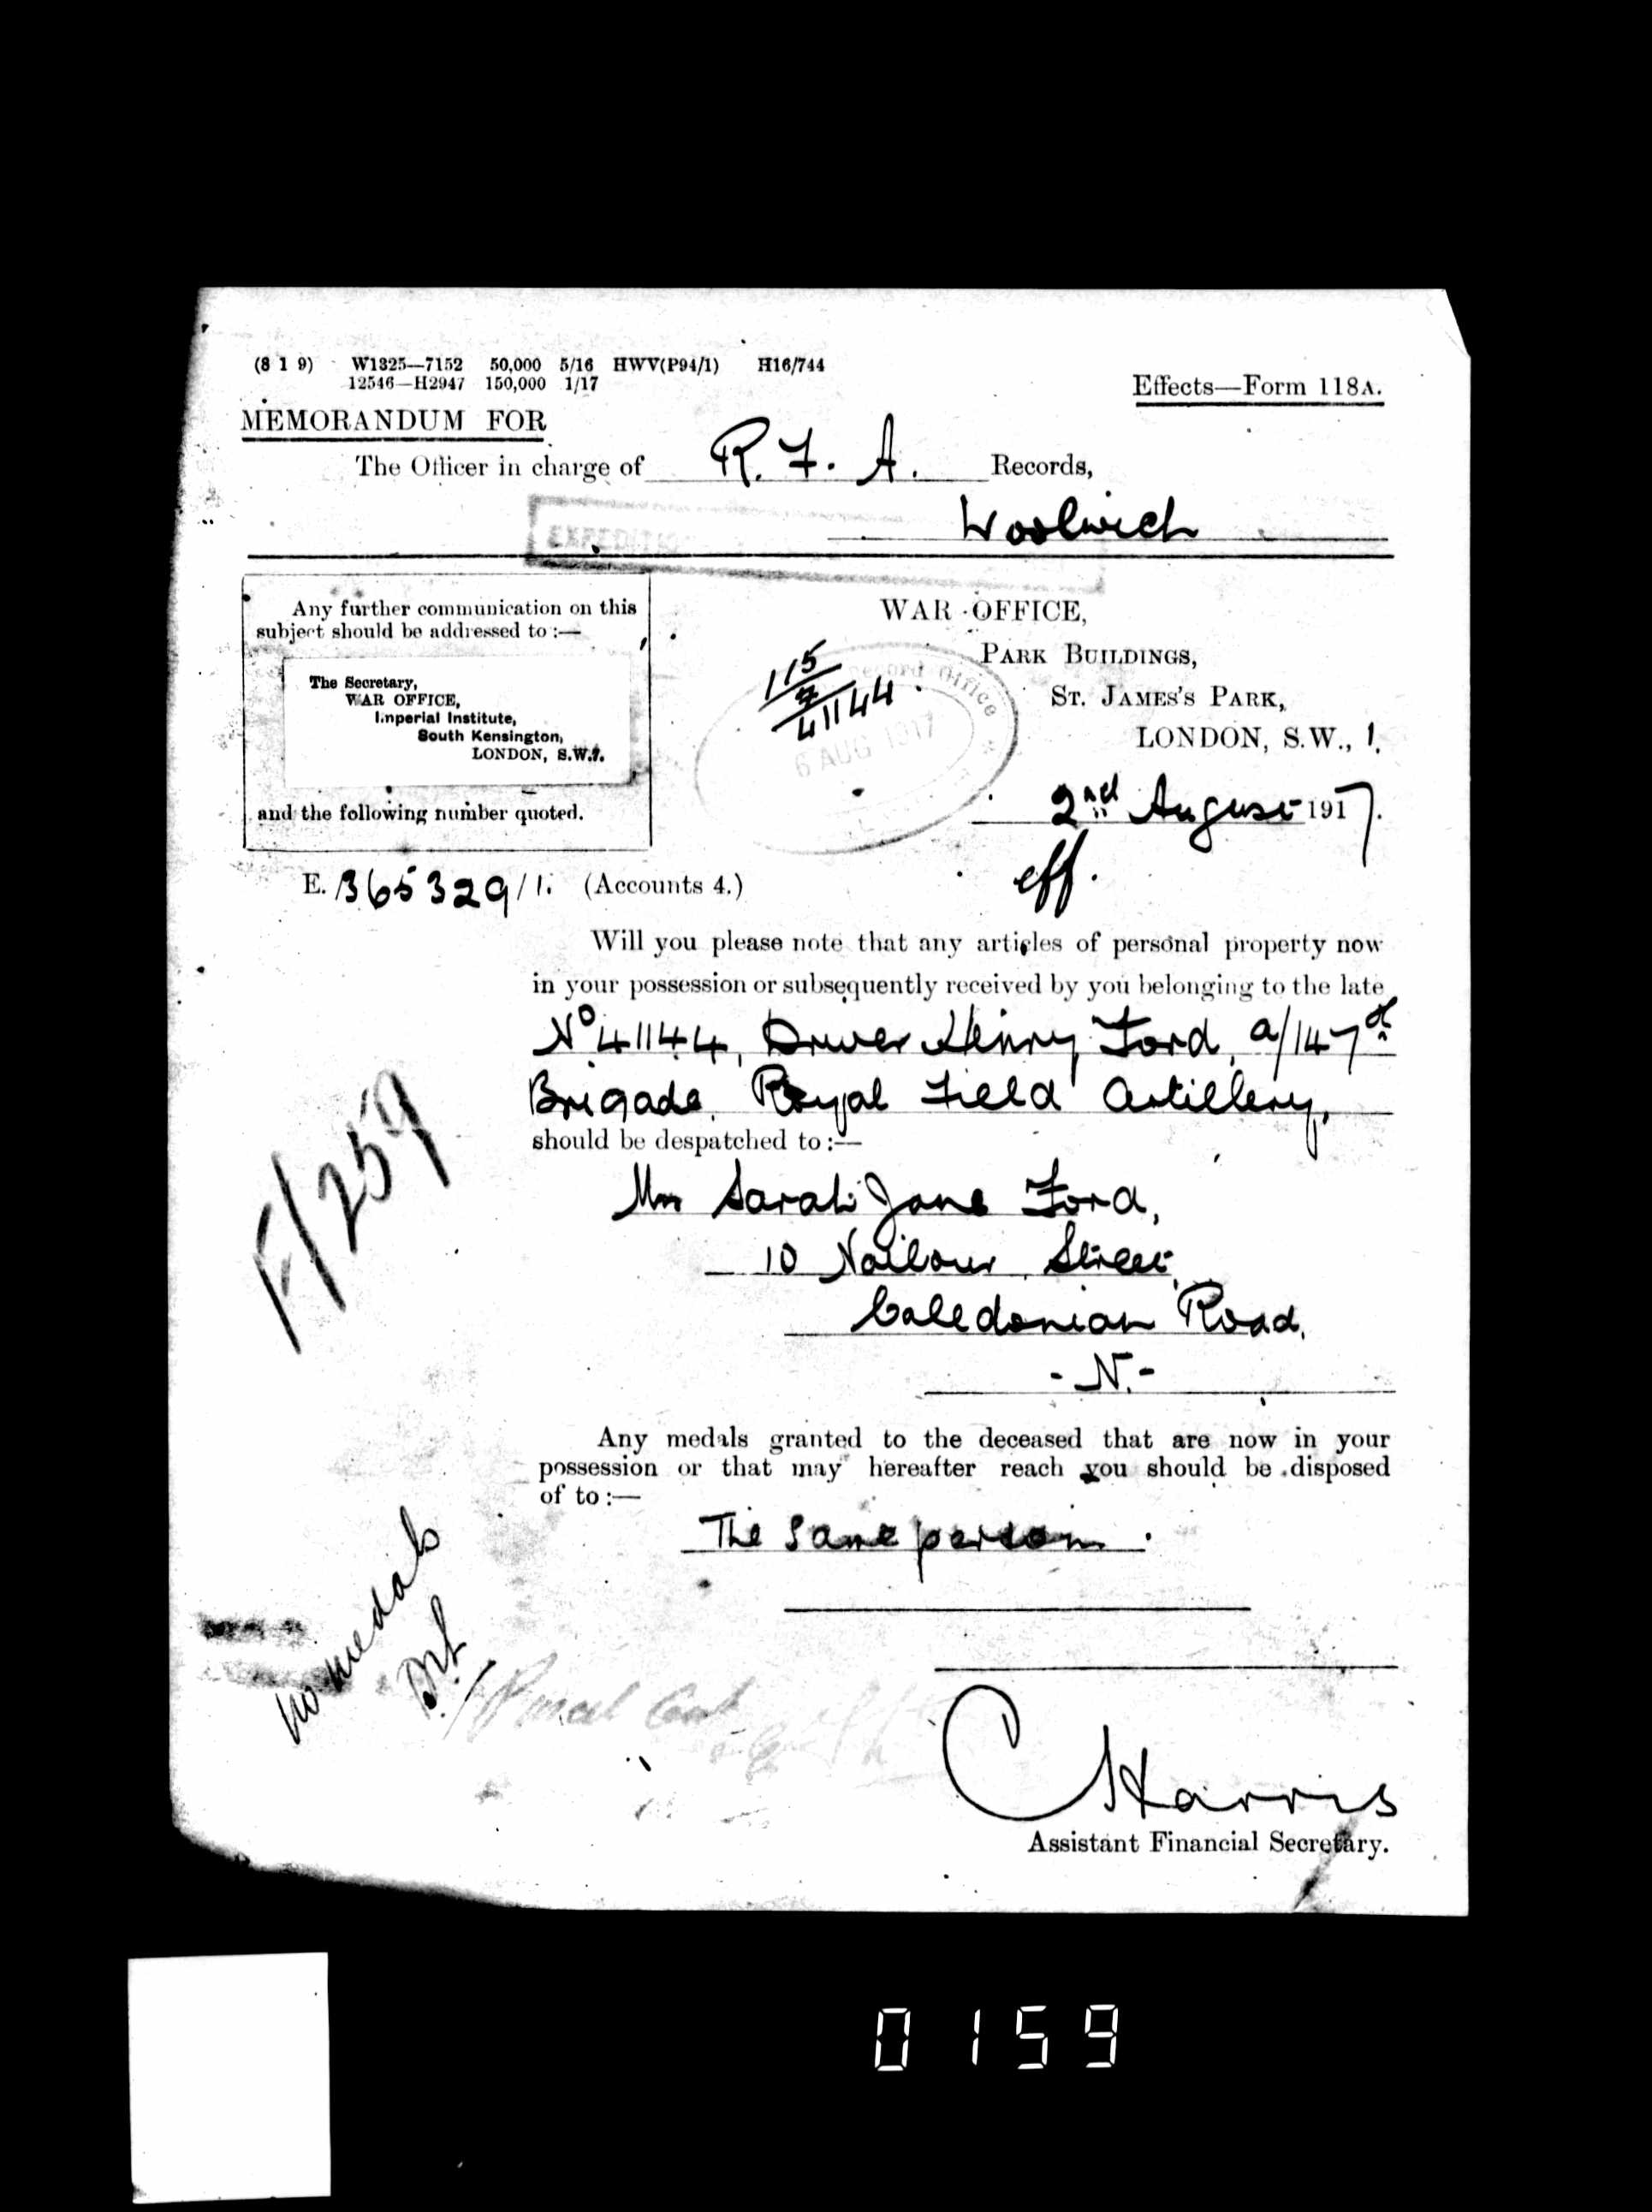 (8 1 9) W1325—7152 50,000 5/16 HWV(P94/1) H16/744
12546—H2947 150,000 1/17
Effects—Form 118A.
MEMORANDUM FOR
The Officer in charge of R. F. A. Records,
Woolwich
EXPEDITIO
Any further communication on this
subject should be addressed to :—
The Secretary,
WAR OFFICE,
Imperial Institute,
South Kensington,
LONDON, S.W.7.
and the following number quoted.
WAR OFFICE,
PARK BUILDINGS,
ST. JAMES'S PARK,
LONDON, S.W., 1.
115
7
41144
Record Office
6 AUG 1917
2nd August 1917.
eff.
E. 365329/1. (Accounts 4.)
Will you please note that any articles of personal property now
in your possession or subsequently received by you belonging to the late
No 41144, Driver Henry Ford, a/147th
Brigade, Royal Field Artillery,
should be despatched to :—
F/259
Mrs Sarah Jane Ford,
10 Street,
Caledonian Road,
- N. -
Any medals granted to the deceased that are now in your
possession or that may hereafter reach you should be disposed
of to :—
The same person.
no medals
Parcel
C Harris
Assistant Financial Secretary.
0159